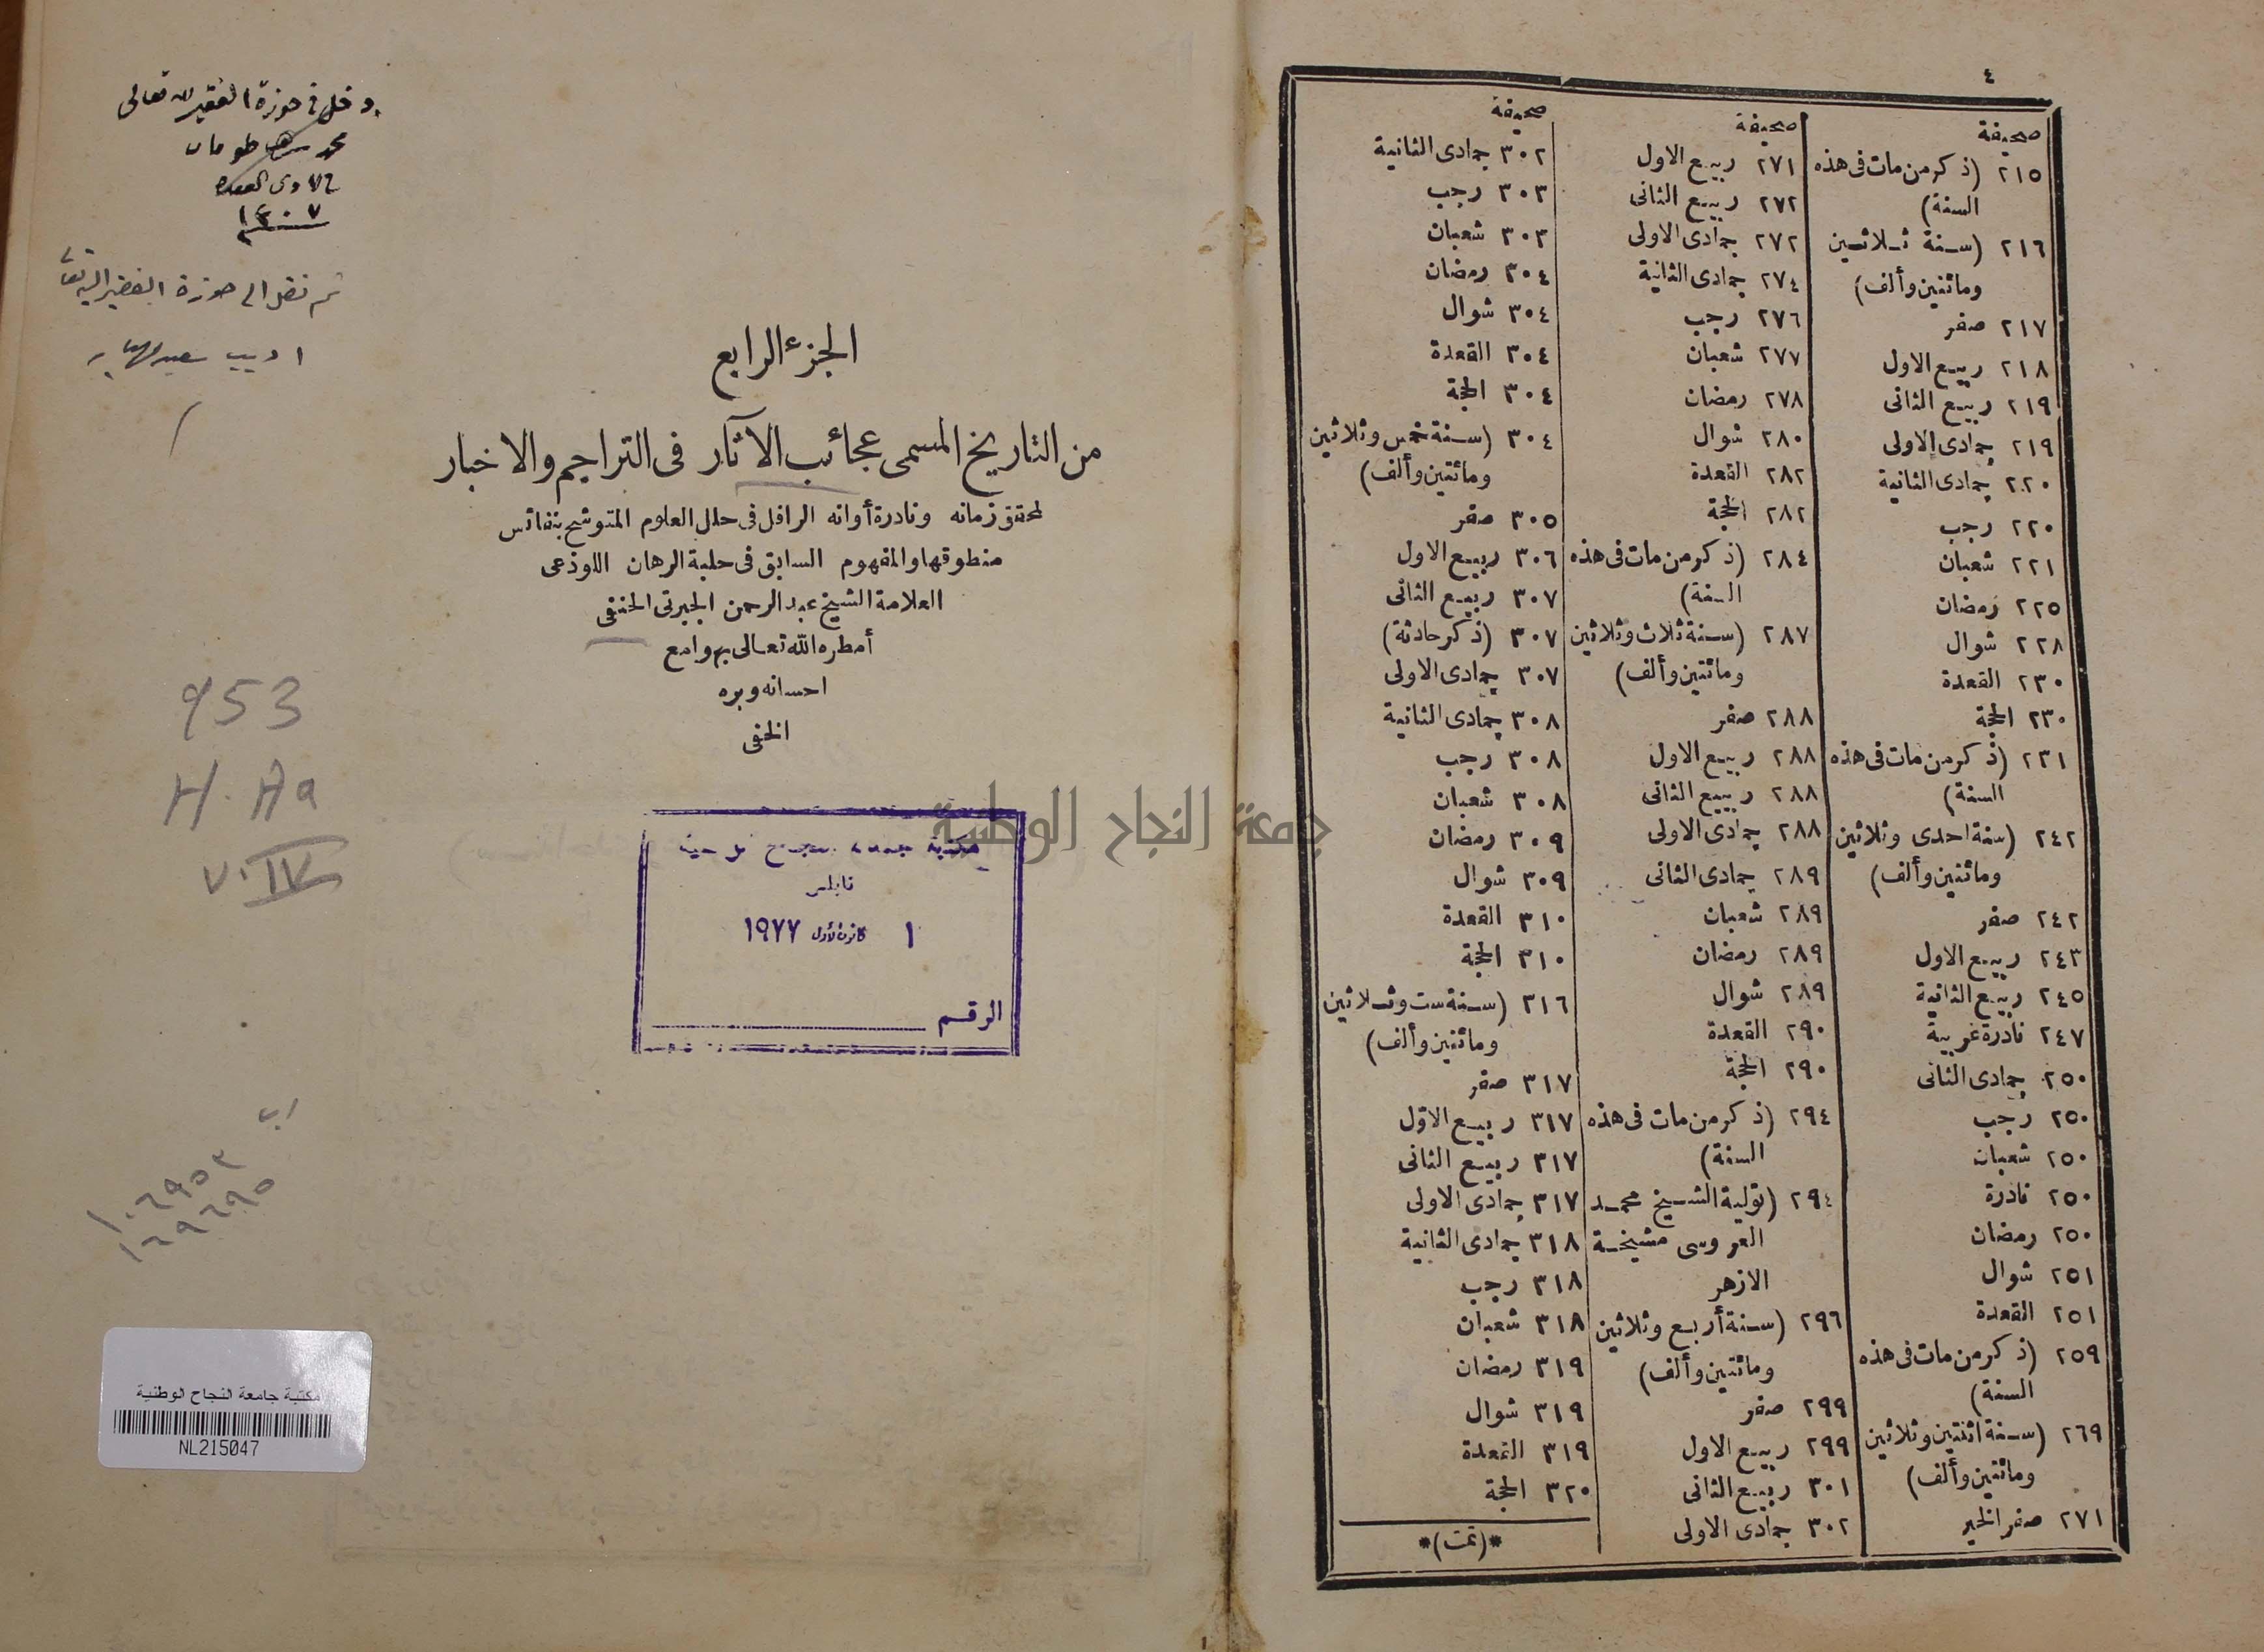 ٤
صحيفة
٢١٥ (ذكر من مات فى هذه
السنة)
٢١٦ (سنة ثلاثين
ومائتين وألف)
٢١٧ صفر
٢١٨ ربيع الاول
٢١٩ ربيع الثانى
٢١٩ جمادى الاولى
٢٢٠ جمادى الثانية
٢٢٠ رجب
٢٢١ شعبان
٢٢٥ رمضان
٢٢٨ شوال
٢٣٠ القعدة
٢٣٠ الحجة
٢٣١ (ذكر من مات فى هذه
السنة)
٢٤٢ (سنة احدى وثلاثين
ومائتين وألف)
٢٤٢ صفر
٢٤٣ ربيع الاول
٢٤٥ ربيع الثانية
٢٤٧ نادرة غريبة
٢٥٠ جمادى الثانى
٢٥٠ رجب
٢٥٠ شعبان
٢٥٠ نادرة
٢٥٠ رمضان
٢٥١ شوال
٢٥١ القعدة
٢٥٩ (ذكر من مات فى هذه
السنة)
٢٦٩ (سنة اثنتين وثلاثين
ومائتين وألف)
٢٧١ صفر الخير
صحيفة
٢٧١ ربيع الاول
٢٧٢ ربيع الثانى
٢٧٢ جمادى الاولى
٢٧٤ جمادى الثانية
٢٧٦ رجب
٢٧٧ شعبان
٢٧٨ رمضان
٢٨٠ شوال
٢٨٢ القعدة
٢٨٢ الحجة
٢٨٤ (ذكر من مات فى هذه
السنة)
٢٨٧ (سنة ثلاث وثلاثين
ومائتين وألف)
٢٨٨ صفر
٢٨٨ ربيع الاول
٢٨٨ ربيع الثانى
٢٨٨ جمادى الاولى
٢٨٩ جمادى الثانى
٢٨٩ شعبان
٢٨٩ رمضان
٢٨٩ شوال
٢٩٠ القعدة
٢٩٠ الحجة
٢٩٤ (ذكر من مات فى هذه
السنة)
٢٩٤ (تولية الشيخ محمد
العروسى مشيخة
الازهر
٢٩٦ (سنة أربع وثلاثين
ومائتين وألف)
٢٩٩ صفر
٢٩٩ ربيع الاول
٣٠١ ربيع الثانى
٣٠٢ جمادى الاولى
صحيفة
٣٠٢ جمادى الثانية
٣٠٣ رجب
٣٠٣ شعبان
٣٠٤ رمضان
٣٠٤ شوال
٣٠٤ القعدة
٣٠٤ الحجة
٣٠٤ (سنة خمس وثلاثين
ومائتين وألف)
٣٠٥ صفر
٣٠٦ ربيع الاول
٣٠٧ ربيع الثانى
٣٠٧ (ذكر حادثة)
٣٠٧ جمادى الاولى
٣٠٨ جمادى الثانية
٣٠٨ رجب
٣٠٨ شعبان
٣٠٩ رمضان
٣٠٩ شوال
٣١٠ القعدة
٣١٠ الحجة
٣١٦ (سنة ست وثلاثين
ومائتين وألف)
٣١٧ صفر
٣١٧ ربيع الاول
٣١٧ ربيع الثانى
٣١٧ جمادى الاولى
٣١٨ جمادى الثانية
٣١٨ رجب
٣١٨ شعبان
٣١٩ رمضان
٣١٩ شوال
٣١٩ القعدة
٣٢٠ الحجة
*(تمت)*
دخل فى حوزة الفقير لله تعالى
محمد طوقان
١٣٠٧
ثم نقل الى حوزة الفقير اليه تعالى
اديب
الجزء الرابع
من التاريخ المسمى عجائب الآثار فى التراجم والاخبار
لمحقق زمانه ونادرة أوانه الرافل فى حلل العلوم المتوشح بنفائس
منطوقها والمفهوم السابق فى حلبة الرهان اللوذعى
العلامة الشيخ عبد الرحمن الجبرتى الحنفى
أمطره الله تعالى بهوامع
احسانه وبره
الخفى
953
H.Ha
V.IV
جامعة النجاح الوطنية
مكتبة جامعة النجاح الوطنية
نابلس
١ كانون الأول ١٩٧٧
الرقم
١٠٦٩٥٣
١٦٩٦٩٥
مكتبة جامعة النجاح الوطنية
NL215047